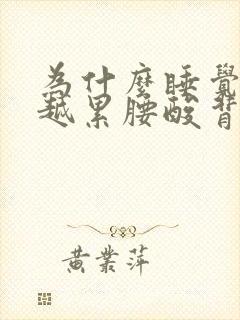 為什麼睡覺
越累腰酸背
黃業萍